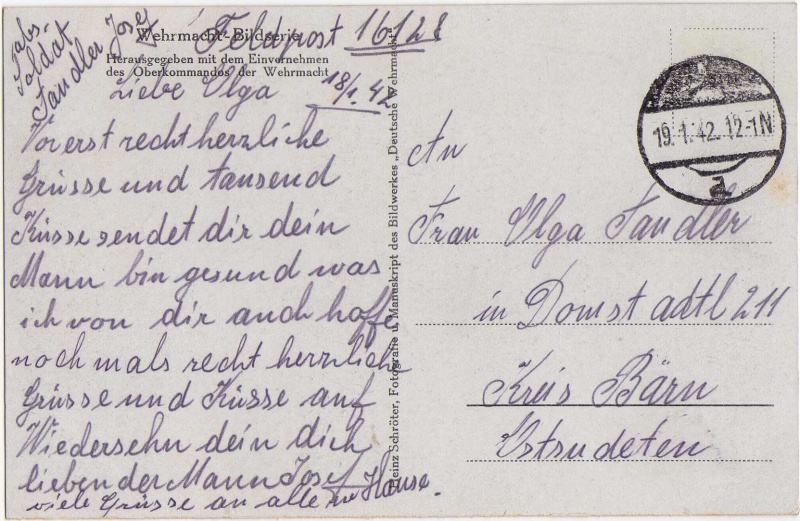 abs.
Soldat
Sandler Josef
Feldpost 16128
Wehrmacht-Bildserie
Herausgegeben mit dem Einvernehmen
des Oberkommandos der Wehrmacht
Liebe Olga 18/1. 42
Vorerst recht herzliche
Grüsse und tausend
Küsse sendet dir dein
Mann bin gesund was
ich von dir auch hoffe
noch mals recht herzliche
Grüsse und Küsse auf
Wiedersehn dein dich
liebender Mann Josef
viele Grüsse an alle zu Hause.
Heinz Schröter, Fotografie u. Manuskript des Bildwerkes „Deutsche Wehrmacht"
19.1.42.12-1N
a
An
Frau Olga Sandler
in Domstadtl 211
Kreis Bärn
Ostsudeten